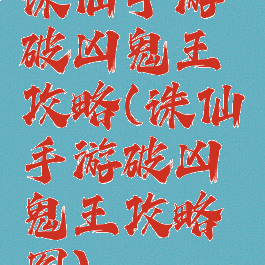 诛仙手游
破凶鬼王
攻略(诛仙
手游破凶
鬼王攻略
图)